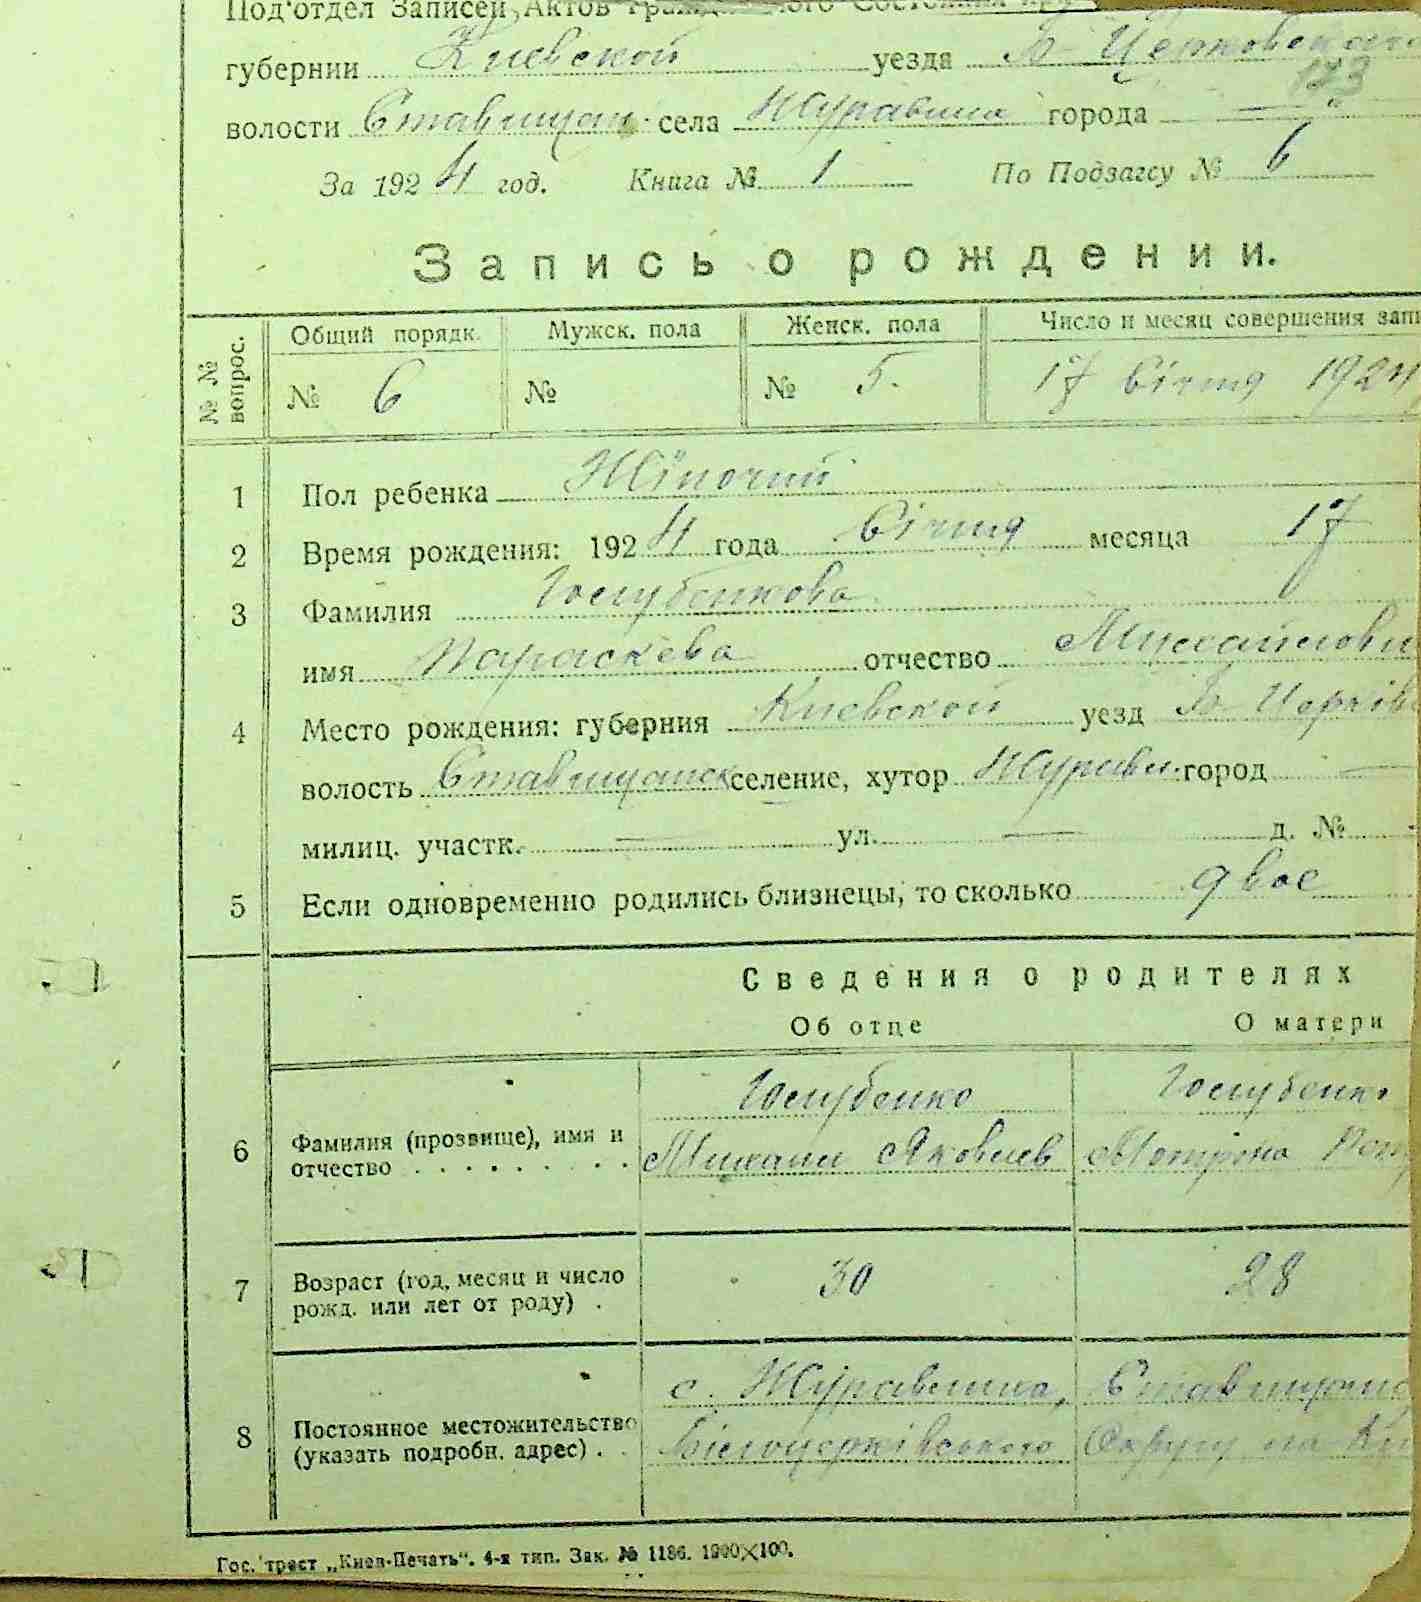 Под'отдел Записей Актов Гражданского Состояния
губернии Киевской уезда Б-Церковского
173
волости Ставищан. села Журавлиха города —
За 1924 год. Книга № 1 По Подзагсу № 6
Запись о рождении.
№ № вопрос. Общий порядк. Мужск. пола Женск. пола Число и месяц совершения запи
№ 6 № № 5. 17 Січня 1924
1 Пол ребенка Жіночий
2 Время рождения: 1924 года Січня месяца 17
3 Фамилия Голубенкова
имя Параскева отчество Михайлови
4 Место рождения: губерния Киевской уезд Б Церків
волость Ставищанск селение, хутор Журавл. город —
милиц. участк. — ул. — д. №
5 Если одновременно родились близнецы, то сколько двое
Сведения о родителях
Об отце О матери
Голубенко Голубенк
6 Фамилия (прозвище), имя и отчество . . . . . . . . . Михаил Яковлев Мотрона
7 Возраст (год, месяц и число рожд. или лет от роду) . 30 28
с. Журавлиха, Ставищанс
8 Постоянное местожительство (указать подробн. адрес) . . Білоцерківського Округу на Ки
Гос. трест „Киев-Печать". 4-я тип. Зак. № 1186. 1900×100.